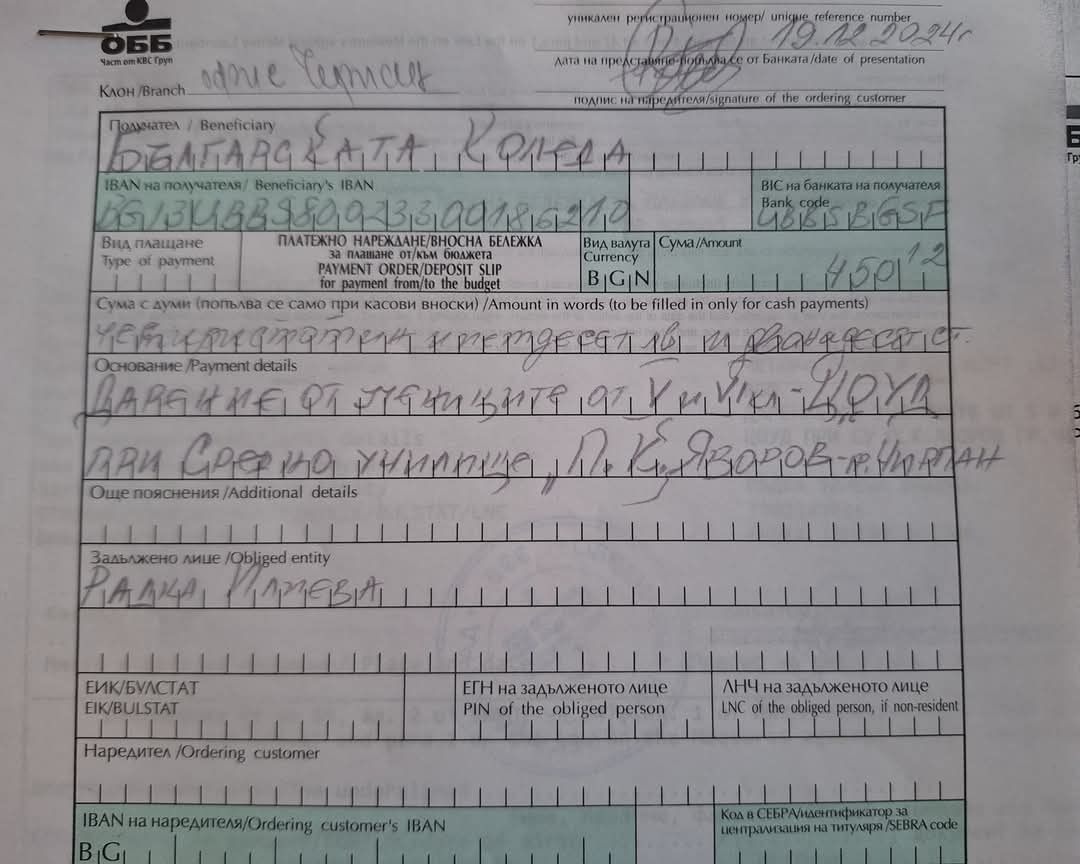 ОББ
Част от КВС Груп
уникален регистрационен номер/ unique reference number
19.12.2024г
дата на представяне-попълва се от Банката/date of presentation
Клон /Branch офис Чирпан
подпис на наредителя/signature of the ordering customer
Получател / Beneficiary
БЪЛГАРСКАТА КОЛЕДА
IBAN на получателя/ Beneficiary's IBAN
BIC на банката на получателя
Bank code
BG13UBBS80023300186210 UBBSBGSF
Вид плащане
Type of payment
ПЛАТЕЖНО НАРЕЖДАНЕ/ВНОСНА БЕЛЕЖКА
за плащане от/към бюджета
PAYMENT ORDER/DEPOSIT SLIP
for payment from/to the budget
Вид валута
Currency
BGN
Сума/Amount
450 12
Сума с думи (попълва се само при касови вноски) /Amount in words (to be filled in only for cash payments)
четиристотин и петдесет лв и дванадесет ст.
Основание /Payment details
ДАРЕНИЕ ОТ УЧЕНИЦИТЕ от V и VI кл - ЦОУД
ПРИ Средно училище „П. К. Яворов - гр. Чирпан
Още пояснения /Additional details
Задължено лице /Obliged entity
РАДКА ИЛИЕВА
ЕИК/БУЛСТАТ
EIK/BULSTAT
ЕГН на задълженото лице
PIN of the obliged person
ЛНЧ на задълженото лице
LNC of the obliged person, if non-resident
Наредител /Ordering customer
IBAN на наредителя/Ordering customer's IBAN
BG
Код в СЕБРА/идентификатор за
централизация на титуляря /SEBRA code